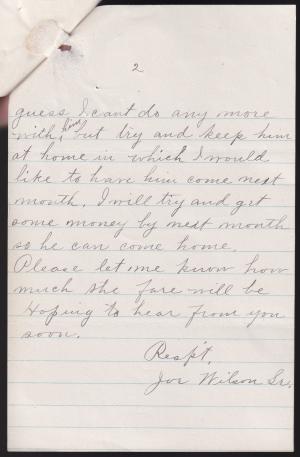 2
guess I cant do any more
with him, but try and keep him
at home in which I would
like to have him come next
month. I will try and get
some money by next month
so he can come home.
Please let me know how
much the fare will be
Hoping to hear from you
soon.
Resp't.
Joe Wilson Sr.